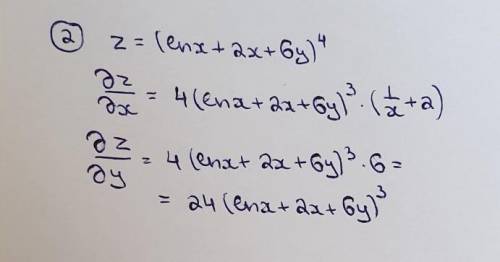 ② z = (lnx + 2x + 6y)⁴
∂z/∂x = 4(lnx + 2x + 6y)³ · (1/x + 2)
∂z/∂y = 4(lnx + 2x + 6y)³ · 6 =
= 24(lnx + 2x + 6y)³